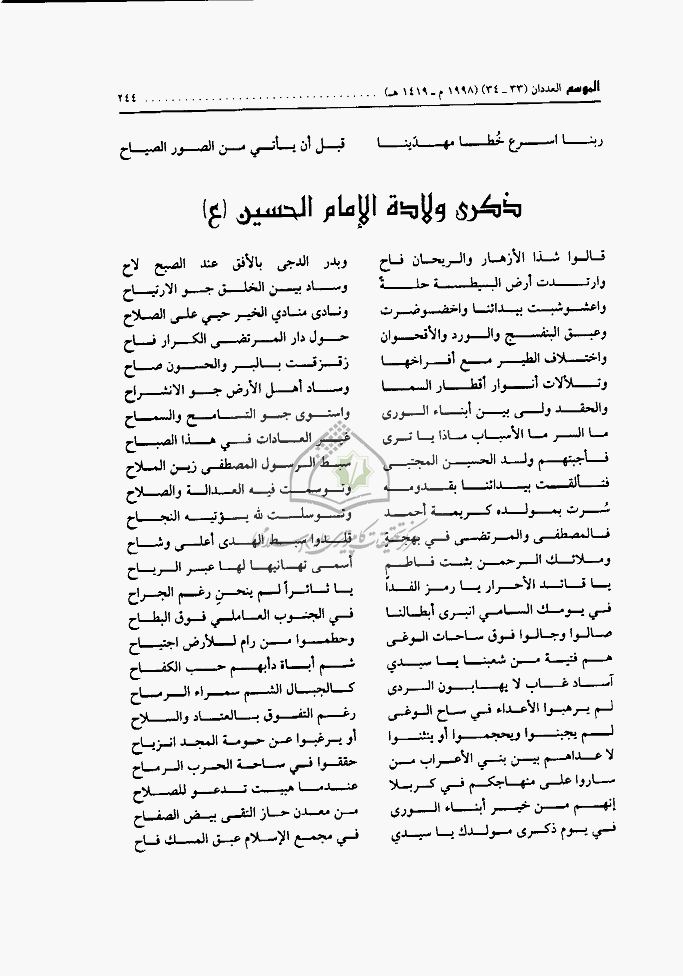 الموسم العددان (٣٣ ـ ٣٤) (١٩٩٨ م ـ ١٤١٩ هـ) ٢٤٤
ربنا اسرع خُطا مهدّينا قبل أن يأتي من الصور الصياح
ذكرى ولادة الإمام الحسين (ع)
قالوا شذا الأزهار والريحان فاح وبدر الدجى بالأفق عند الصبح لاح
وارتدت أرض البسيطة حلةً وساد بين الخلق جو الارتياح
واعشوشبت بيدائنا واخضوضرت ونادى منادي الخير حيي على الصلاح
وعبق البنفسج والورد والأقحوان حول دار المرتضى الكرار فاح
واختلاف الطير مع أفراخها زقزقت بالبر والحسون صاح
وتلألات أنوار أقطار السما وساد أهل الأرض جو الانشراح
والحقد ولى بين أبناء الورى واستوى جو التسامح والسماح
ما السر ما الأسباب ماذا يا ترى غير العادات في هذا الصباح
فأجبتهم ولد الحسين المجتبى سبط الرسول المصطفى زين الملاح
فتألقت بيدائنا بقدومه وتوسمت فيه العدالة والصلاح
سُرت بمولده كريمة أحمد وتوسلت لله يؤتيه النجاح
فالمصطفى والمرتضى في بهجة قلدوا سبط الهدى أعلى وشاح
وملائك الرحمن بشت فاطم أسمى تهانيها لها عبر الرياح
يا قائد الأحرار يا رمز الفدا يا ثائراً لم ينحنِ رغم الجراح
في يومك السامي انبرى أبطالنا في الجنوب العاملي فوق البطاح
صالوا وجالوا فوق ساحات الوغى وحطموا من رام للأرض اجتياح
هم فتية من شعبنا يا سيدي شم أباة دأبهم حب الكفاح
آساد غاب لا يهابون الردى كالجبال الشم سمراء الرماح
لم يرهبوا الأعداء في ساح الوغى رغم التفوق بالعتاد والسلاح
لم يجبنوا ويحجموا أو ينثنوا أو يرغبوا عن حومة المجد انزياح
لا عداهم بين بني الأعراب من حققوا في ساحة الحرب الرماح
ساروا على منهاجكم في كربلا عندما هبيت تدعو للصلاح
إنهم من خير أبناء الورى من معدن حاز التقى بيض الصفاح
في يوم ذكرى مولدك يا سيدي في مجمع الإسلام عبق المسك فاح